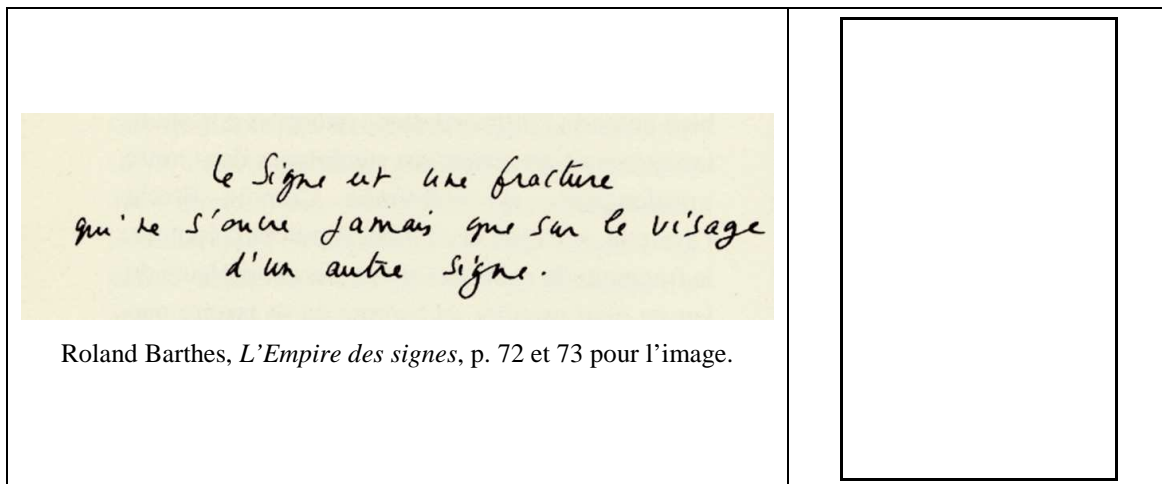 le Signe est une fracture
qui ne s'ouvre jamais que sur le visage
d'un autre signe.
Roland Barthes, L'Empire des signes, p. 72 et 73 pour l'image.